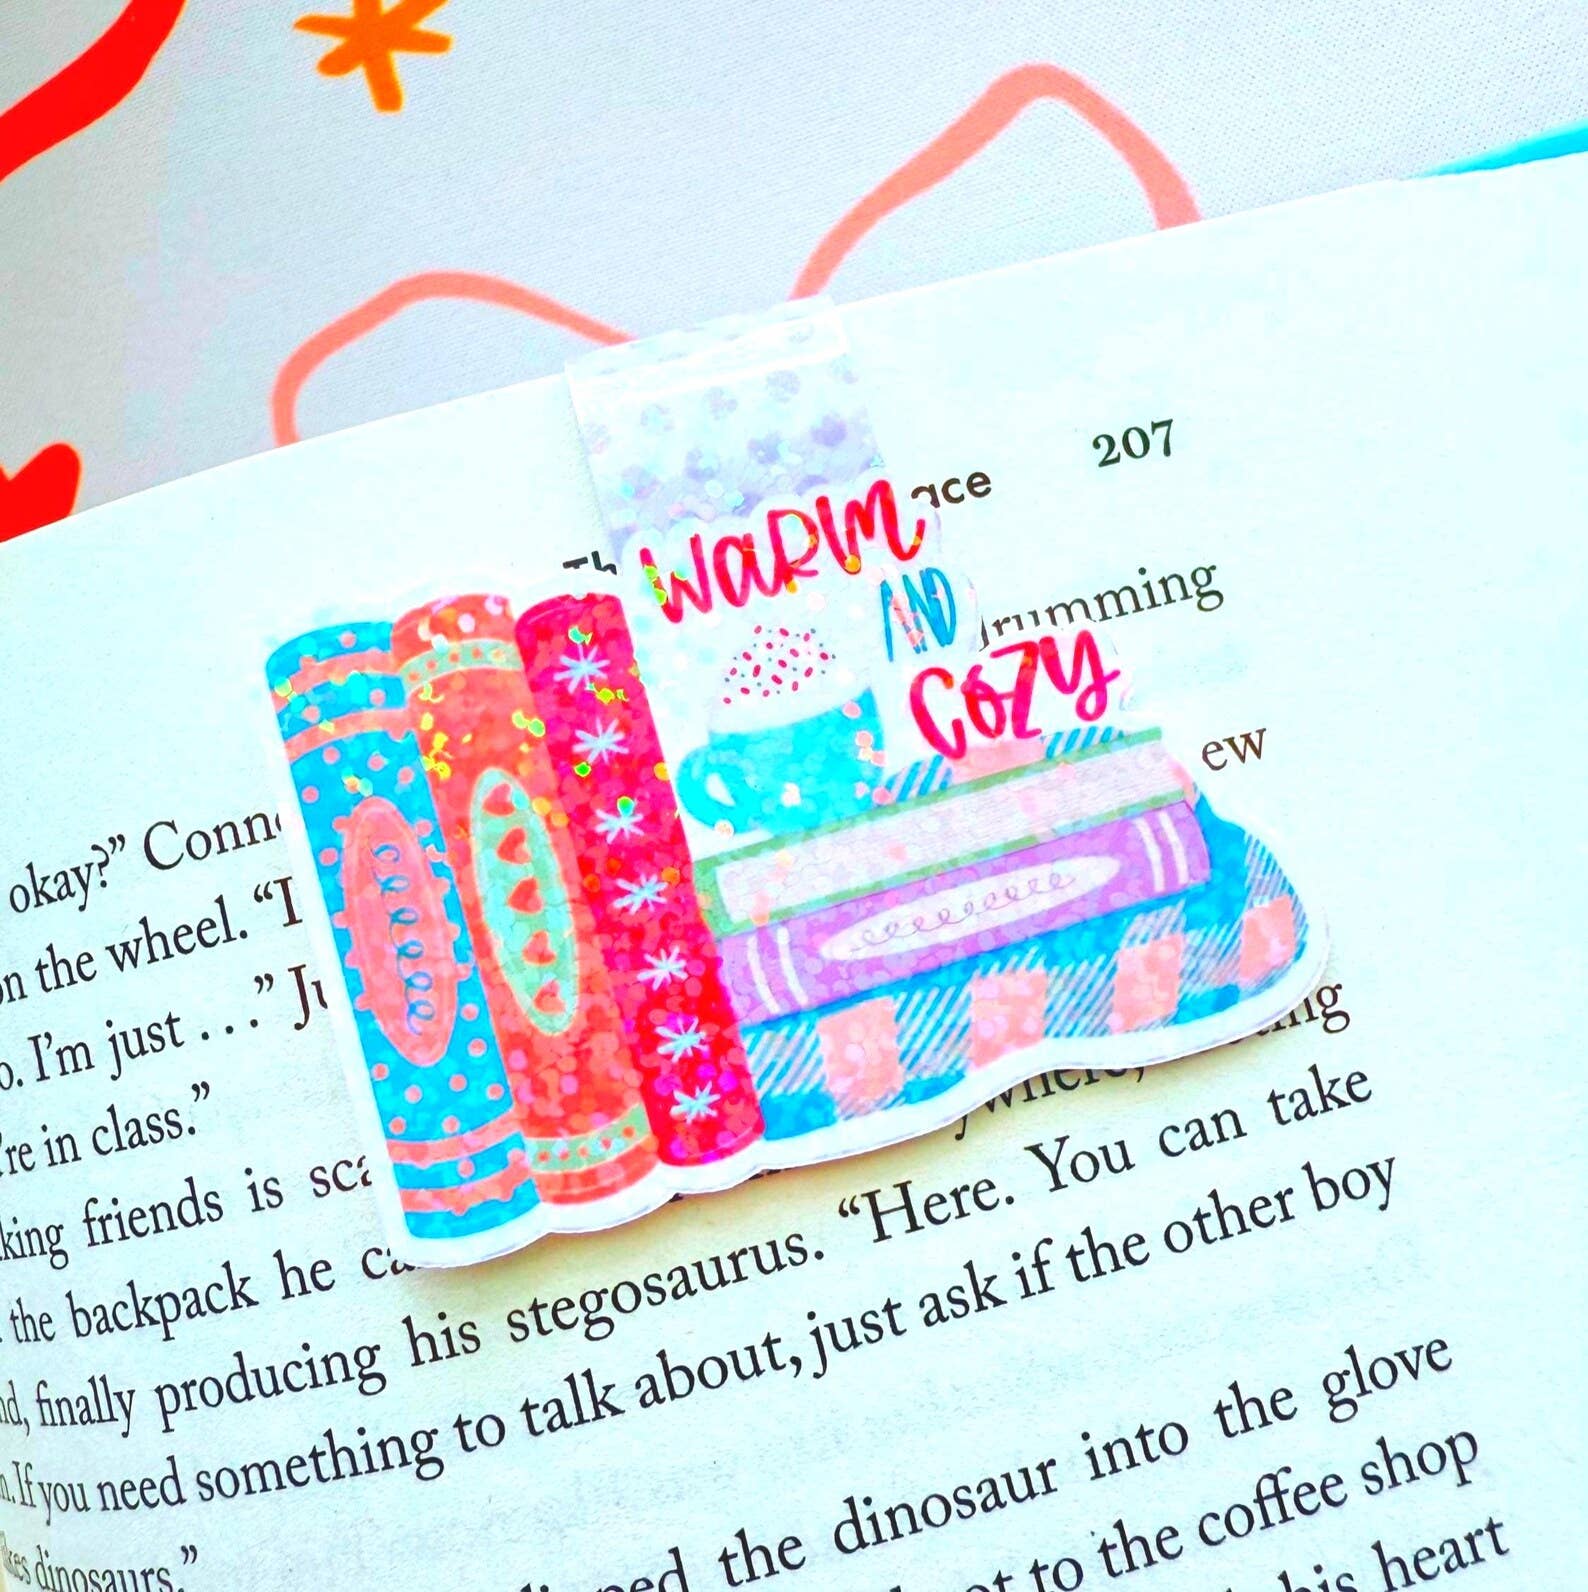 207
WARM
AND
COZY
ew
okay?”
on the wheel. “I
I’m just . . .”
’re in class.”
friends is
the backpack he
finally producing his stegosaurus. “Here. You can take
If you need something to talk about, just ask if the other boy
dinosaurs.”
the dinosaur into the glove
to the coffee shop
his heart